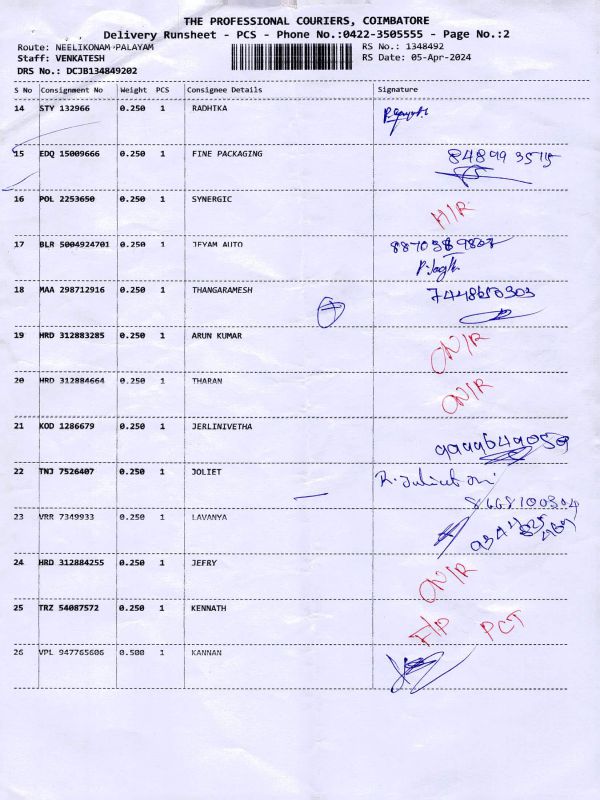 THE PROFESSIONAL COURIERS, COIMBATORE
Delivery Runsheet - PCS - Phone No.:0422-3505555 - Page No.:2
Route: NEELIKONAM PALAYAM RS No.: 1348492
Staff: VENKATESH RS Date: 05-Apr-2024
DRS No.: DCJB134849202
S No Consignment No Weight PCS Consignee Details Signature
14 STY 132966 0.250 1 RADHIKA
15 EDQ 15009666 0.250 1 FINE PACKAGING
16 POL 2253650 0.250 1 SYNERGIC H/R
17 BLR 5004924701 0.250 1 JEYAM AUTO
18 MAA 298712916 0.250 1 THANGARAMESH 7448680303
19 HRD 312883285 0.250 1 ARUN KUMAR ON/R
20 HRD 312884664 0.250 1 THARAN ON/R
21 KOD 1286679 0.250 1 JERLINIVETHA
22 TNJ 7526407 0.250 1 JOLIET
8668100304
23 VRR 7349933 0.250 1 LAVANYA
24 HRD 312884255 0.250 1 JEFRY ON/R
25 TRZ 54087572 0.250 1 KENNATH F/P PCT
26 VPL 947765606 0.500 1 KANNAN